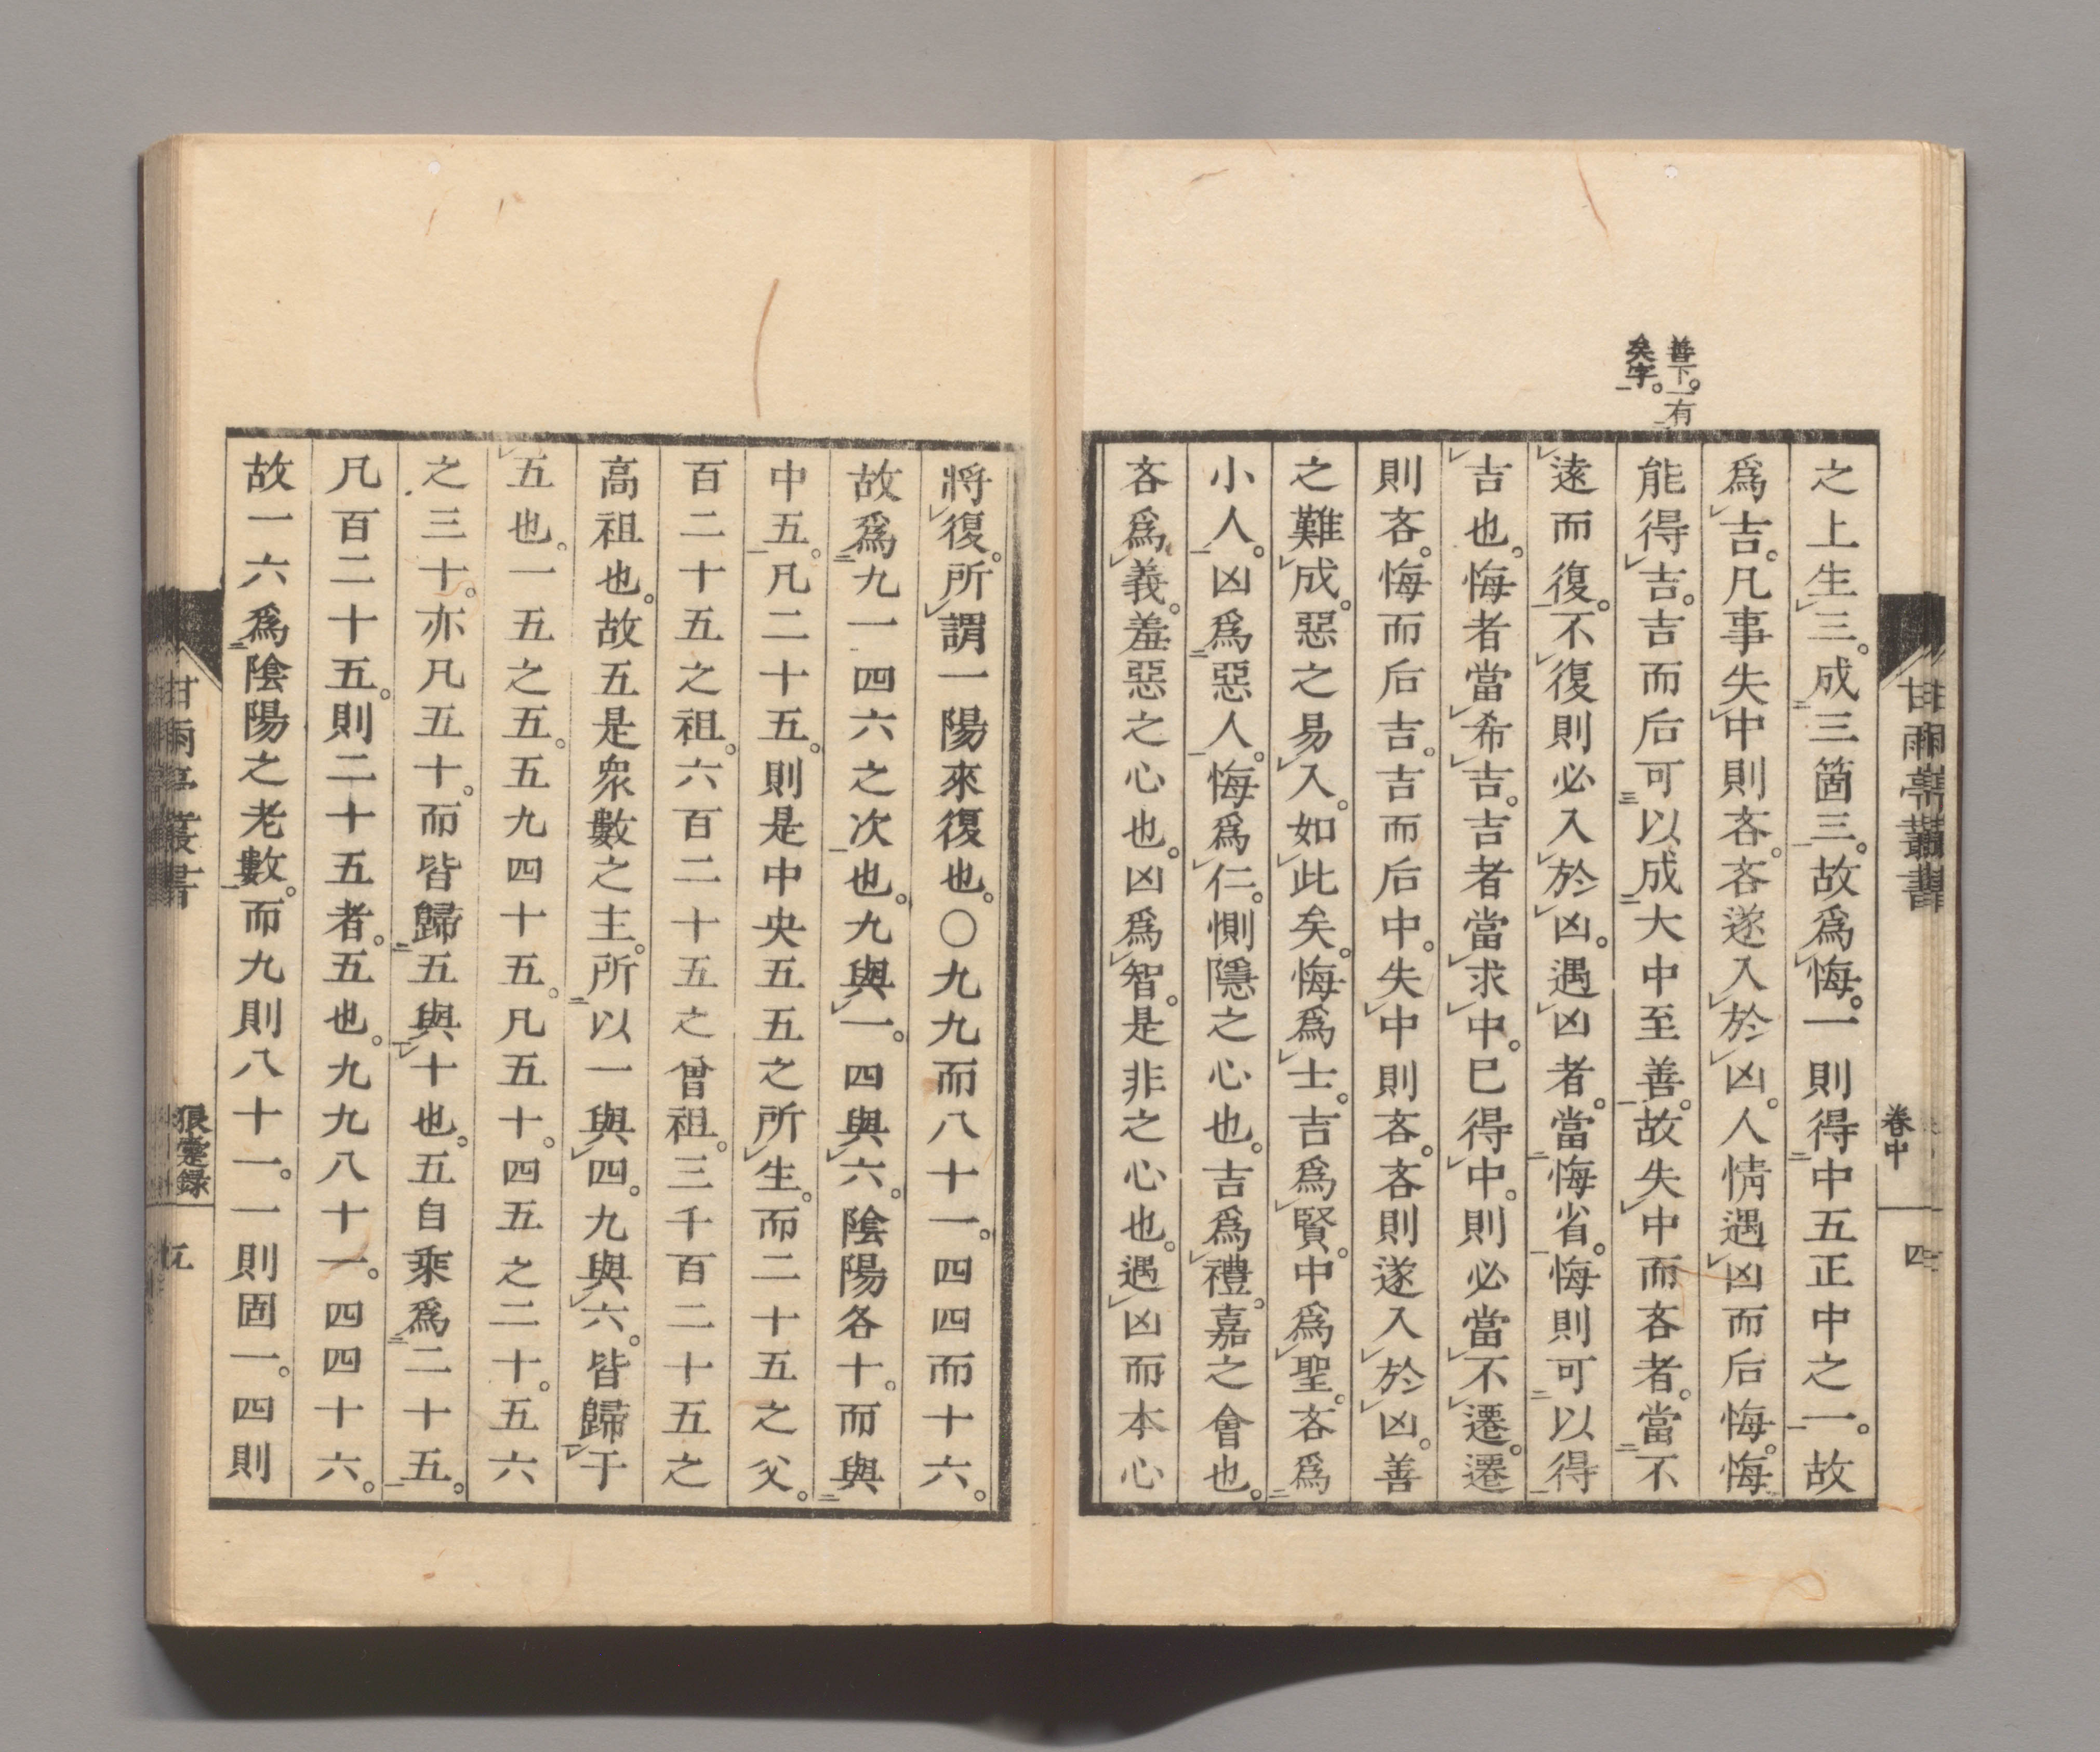 善下。一有
矣字。
之上生三。成三箇三。故爲悔。一則得中五正中之一。故
爲吉。凡事失中則吝。吝遂入於凶。人情遇凶而后悔。悔
能得吉。吉而后可以成大中至善。故失中而吝者。當不
遠而復。不復則必入於凶。遇凶者。當悔省。悔則可以得
吉也。悔者當希吉。吉者當求中。已得中。則必當不遷。遷
則吝。悔而后吉。吉而后中。失中則吝。吝則遂入於凶。善
之難成。惡之易入。如此矣。悔爲士。吉爲賢。中爲聖。吝爲
小人。凶爲惡人。悔爲仁。惻隱之心也。吉爲禮。嘉之會也。
吝爲義。羞惡之心也。凶爲智。是非之心也。遇凶而本心
甘雨亭叢書
卷中
四
將復。所謂一陽來復也。〇九九而八十一。四四而十六。
故爲九一四六之次也。九與一。四與六。陰陽各十。而與
中五。凡二十五。則是中央五五之所生。而二十五之父。
百二十五之祖。六百二十五之曾祖。三千百二十五之
高祖也。故五是衆數之主。所以一與四。九與六。皆歸于
五也。一五之五。五九四十五。凡五十。四五之二十。五六
之三十。亦凡五十。而皆歸五與十也。五自乘爲二十五。
凡百二十五。則二十五者。五也。九九八十一。四四十六。
故一六爲陰陽之老數。而九則八十一。一則固一。四則
甘雨亭叢書
狼疐録
五